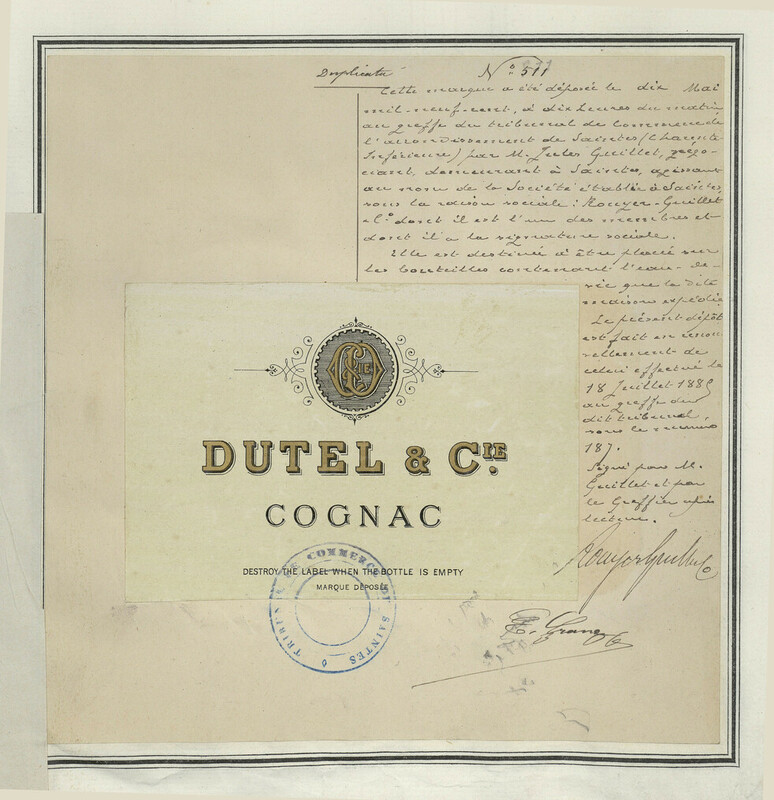 Duplicata
N° 511
Cette marque a été déposée le dix Mai
mil-neuf-cent, à dix heures du matin
au greffe du tribunal de Commerce de
l'arrondissement de Saintes (Charente
Inférieure) par M. Jules Guillet, négo-
ciant, demeurant à Saintes, agissant
au nom de la Société établie à Saintes,
sous la raison sociale : Rouyer-Guillet
& Cº dont il est l'un des membres et
dont il a la signature sociale.
Elle est destinée à être placée sur
les bouteilles contenant l'eau-de-
vie que la dite
maison expédie.
Le présent dépôt
est fait en renou
vellement de
celui effectué le
18 Juillet 1885
au greffe du
dit tribunal,
sous le numéro
187.
Signé par M.
Guillet et par
le Greffier après
lecture.
Rouyer Guillet & Co
DUTEL & CIE.
COGNAC
DESTROY THE LABEL WHEN THE BOTTLE IS EMPTY
MARQUE DÉPOSÉE
TRIBUNAL DE COMMERCE DE SAINTES